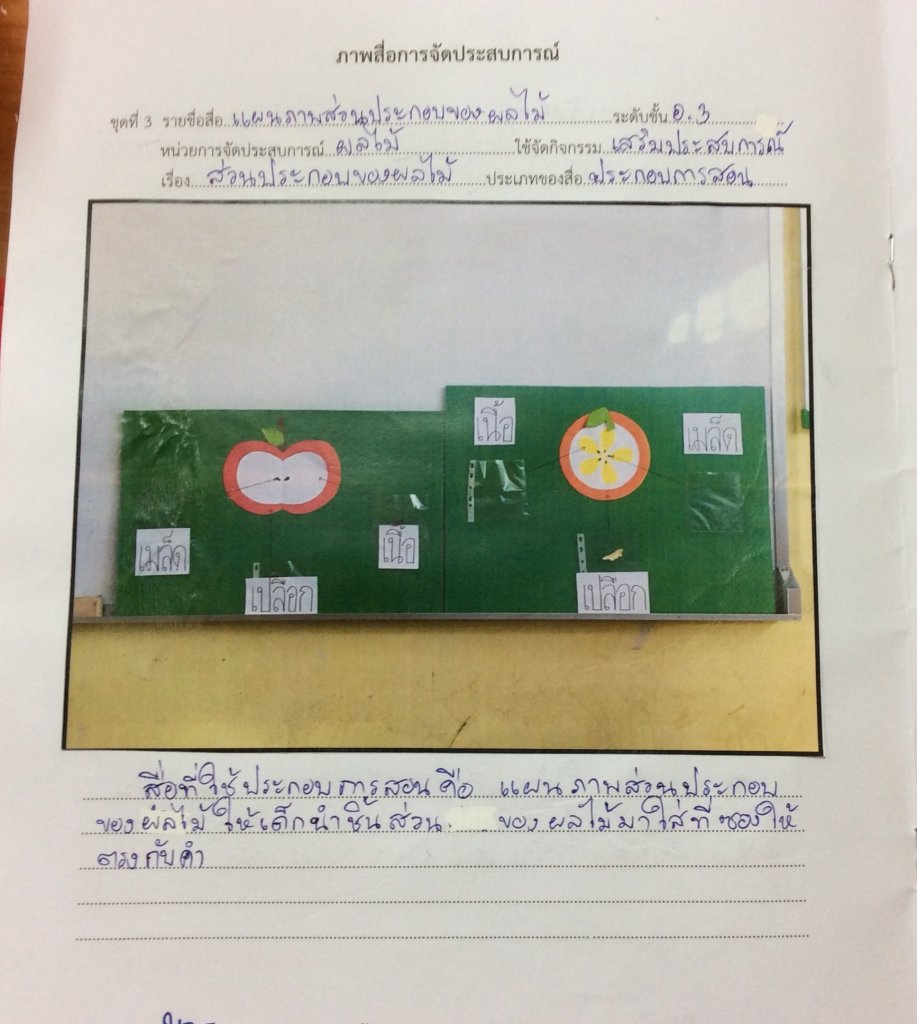 ภาพสื่อการจัดประสบการณ์
ชุดที่ 3 รายชื่อสื่อ แผนภาพส่วนประกอบของผลไม้ ระดับชั้น อ.3
หน่วยการจัดประสบการณ์ ผลไม้ ใช้จัดกิจกรรม เสริมประสบการณ์
เรื่อง ส่วนประกอบของผลไม้ ประเภทของสื่อ ประกอบการสอน
เนื้อ เมล็ด
เมล็ด เนื้อ
เปลือก เปลือก
สื่อที่ใช้ประกอบการสอนคือ แผนภาพส่วนประกอบ
ของผลไม้ ให้เด็กนำชิ้นส่วน ของผลไม้มาใส่ที่ซองให้
ตรงกับคำ